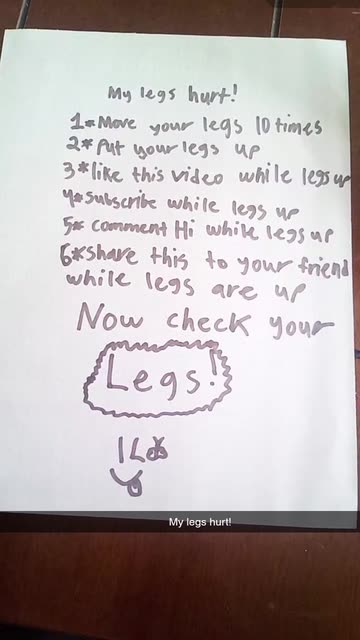 My legs hurt!
1* Move your legs 10 times
2* Put your legs up
3* like this video while legs up
4* Subscribe while legs up
5* Comment Hi while legs up
6* Share this to your friend
while legs are up
Now check your
Legs!
My legs hurt!